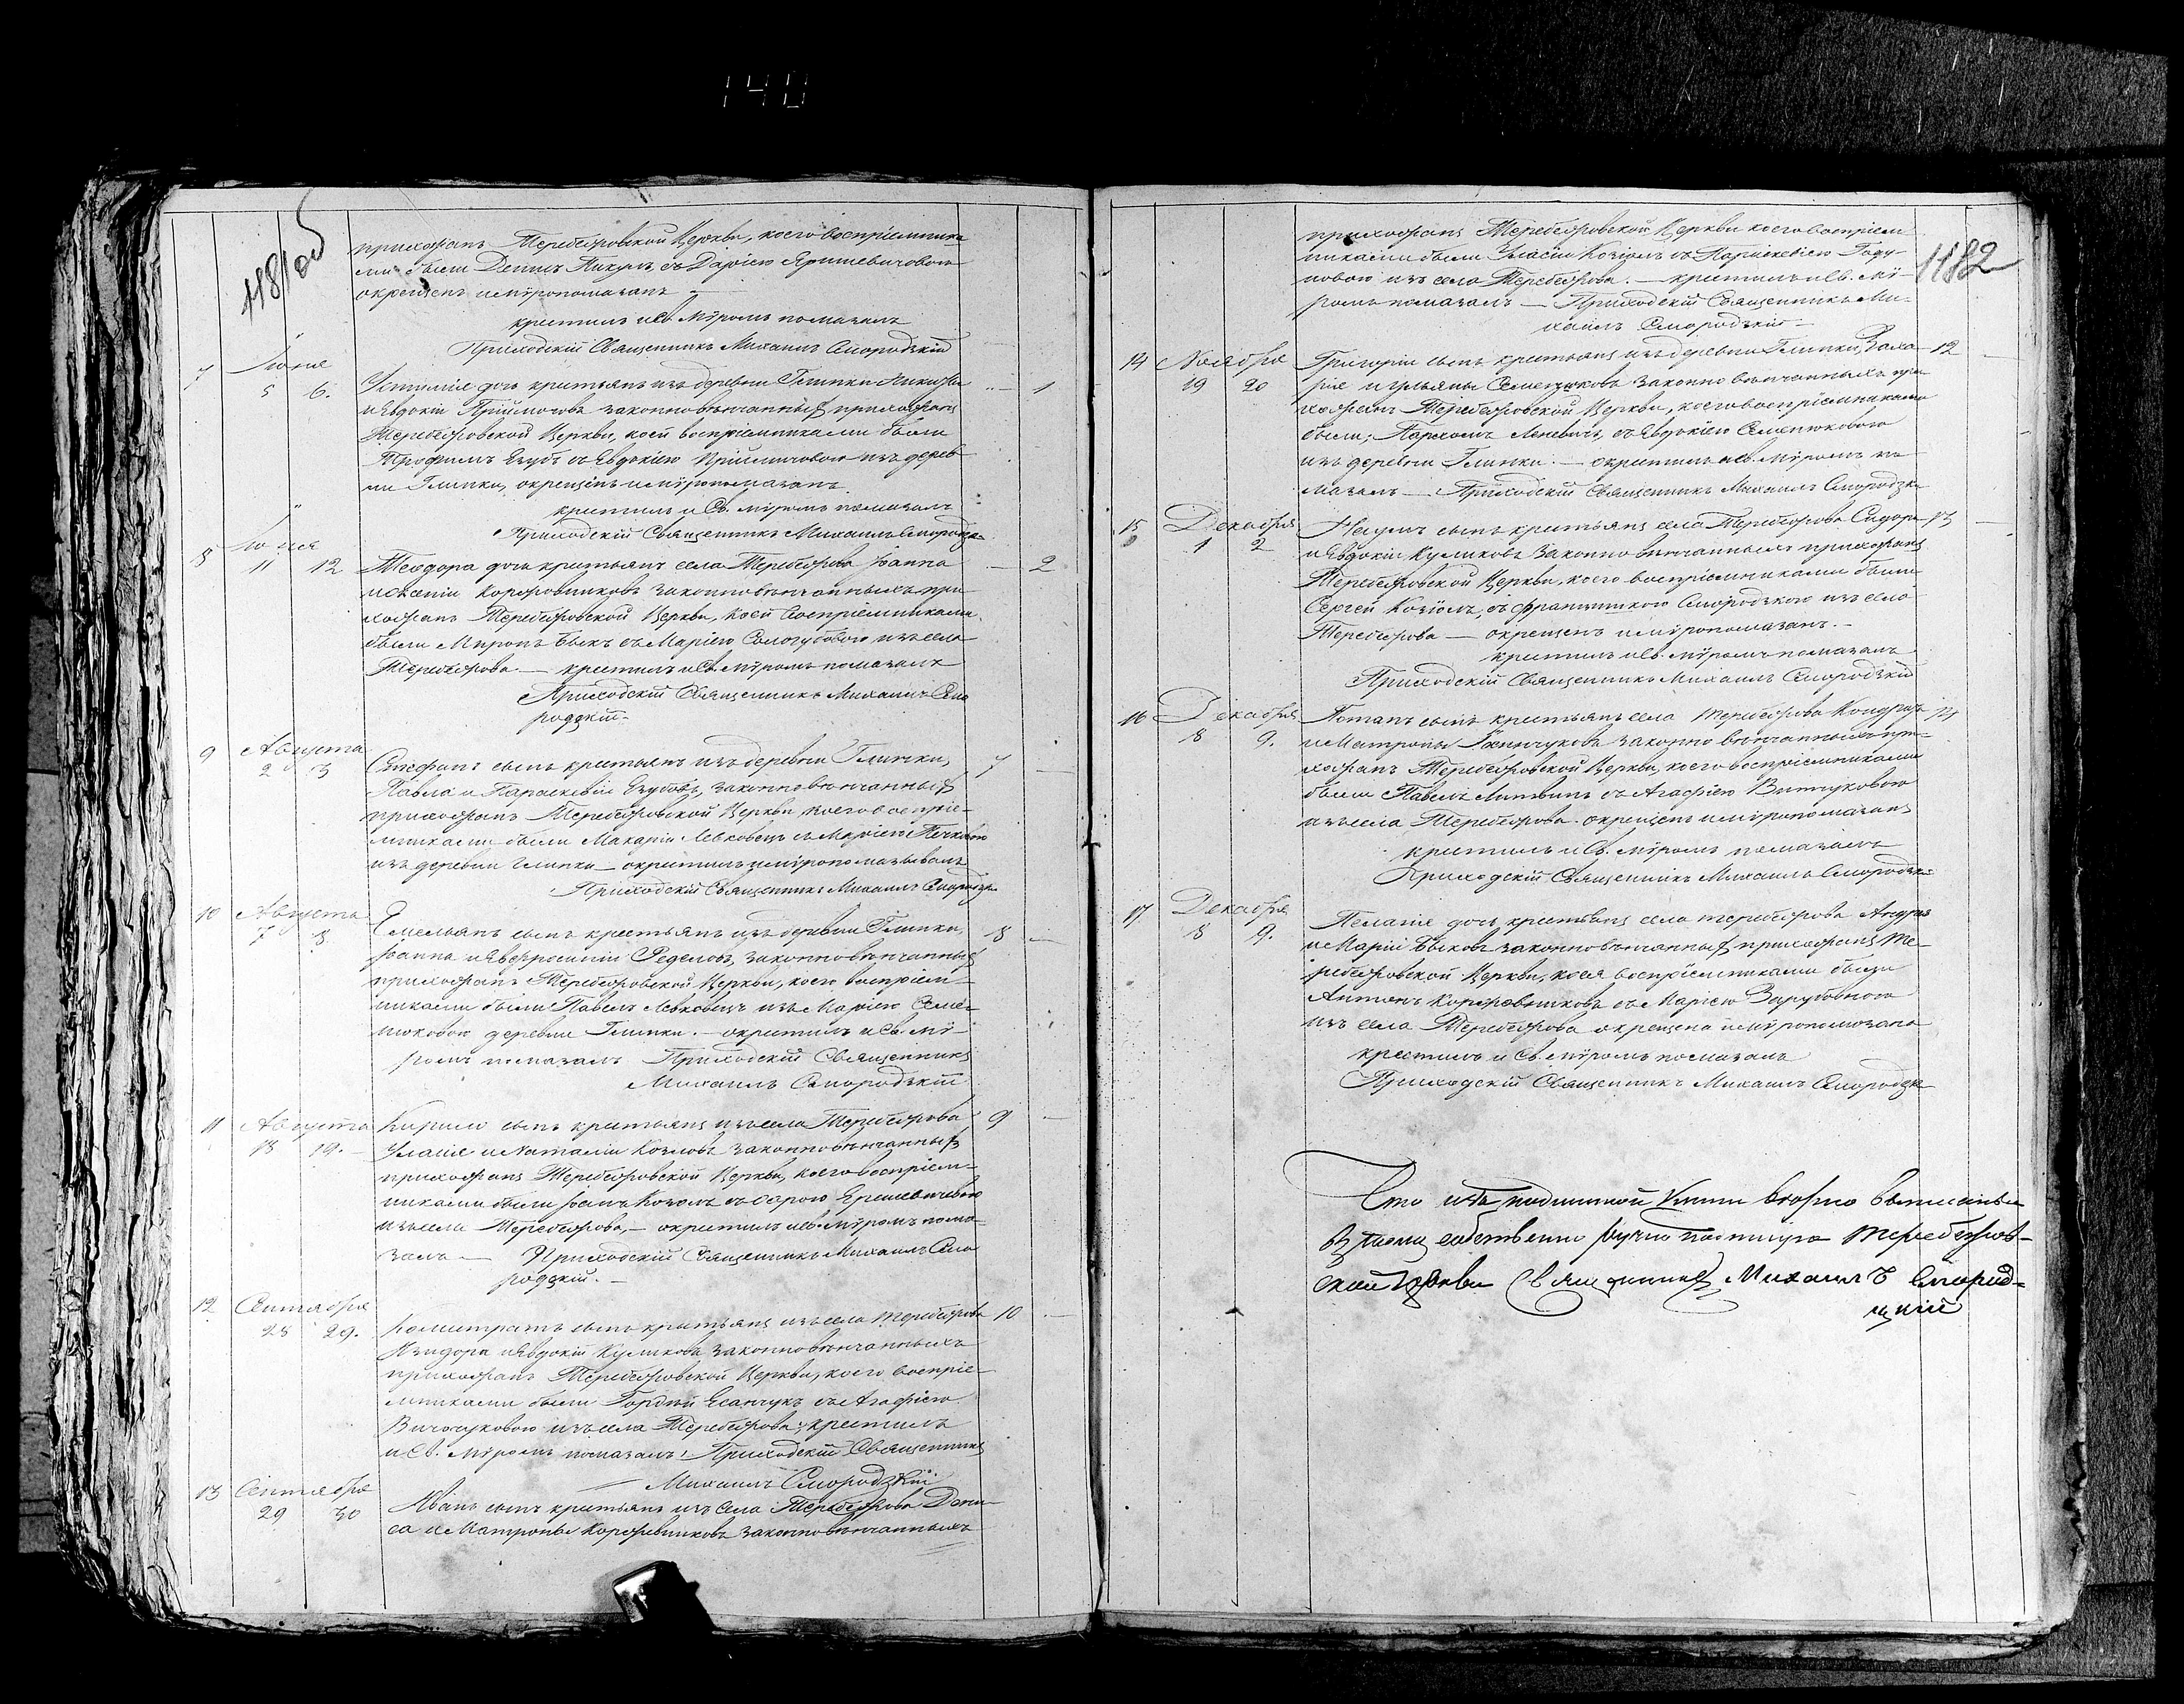 140
1181 об
прихожанъ Теребежовской Церкви, коего воспріемника
ми были Денисъ Пикулъ съ Даріею Яришевичовою
окрещенъ и мѵропомазанъ —
крестилъ и Св. Мѵромъ помазалъ
Приходскій Священникъ Михаилъ Смородзкій
7 Іюня
5 6. Устинія дочь крестьянъ изъ деревни Глинки
и Евдокіи законновѣнчанныхъ прихожанъ — 1
Теребежовской Церкви, коей воспріемниками были
Трофимъ Езубъ съ Евдокіею изъ дерев
ни Глинки, окрещенъ и мѵропомазанъ
крестилъ и Св. мѵромъ помазалъ
Приходскій Священникъ Михаилъ Смородзкі
8 Іюля
11 12 Теодора дочь крестьянъ села Теребежова Іоанна — 2
и Ксеніи Коржовниковъ законновѣнчанныхъ при
хожанъ Теребежовской Церкви, коей воспріемниками
были Миронъ Быкъ съ Маріею Сологубовою изъ села
Теребежова. — крестилъ и Св. Мѵромъ помазалъ
Приходскій Священникъ Михаилъ Смо
родзкій —
9 Августа
2 3 Стефанъ сынъ крестьянъ изъ деревни Глинки, 7 —
Павла и Параскевіи Езубовъ, законновѣнчанныхъ
прихожанъ Теребежовской Церкви коего воспріе-
мниками были Макарій Левковецъ съ Маріею
изъ деревни Глинки — окрестилъ и мѵропомазывалъ
Приходскій Священникъ Михаилъ Смородзкі
10 Августа
7 8 Емельянъ сынъ крестьянъ изъ деревни Глинки, 8 —
Іоанна и Евфросиніи законновѣнчанныхъ
прихожанъ Теребежовской Церкви, коего воспріем-
никами были Павелъ Левковецъ изъ Маріею Семе-
нюковою деревни Глинки. — окрестилъ и Св. Мѵ-
ромъ помазалъ Приходскій Священникъ
Михаилъ Смородзкій
11 Августа Кирило сынъ крестьянъ изъ села Теребежова 9 —
18 19. — и Наталіи Козловъ законновѣнчанныхъ
прихожанъ Теребежовской Церкви, коего воспріем-
никами были Козолъ съ
изъ села Теребежова, — окрестилъ и Св. Мѵромъ пома-
залъ — Приходскій Священникъ Михаилъ Смо
родзкій. —
12 Сентября
28 29. Калистратъ сынъ крестьянъ изъ села Теребежова 10 —
Изидора и Евдокіи Куликовъ законновѣнчанныхъ
прихожанъ Теребежовской Церкви, коего воспріе-
мниками были Гордѣй съ Агафіею
изъ села Теребежова, крестилъ
и Св. Мѵромъ помазалъ: Приходскій Священникъ
— Михаилъ Смородзкій
13 Сентября
29 30 Иванъ сынъ крестьянъ изъ Села Теребежова Дени
са и Матроны Коржевниковъ законновѣнчанныхъ
1182
прихожанъ Теребежовской Церкви коего воспріем
никами были Власій Козіолъ съ Параскевіею Году-
новою изъ села Теребежова. — крестилъ и Св. Мѵ-
ромъ помазалъ — Приходскій Священникъ Ми-
хаилъ Смородзкій —
14 Ноября Григорій сынъ крестьянъ изъ деревни Глинки, Заха 12
19 20 рія и Ульяны Семенюковъ законно вѣнчанныхъ при
хожанъ Теребежовской Церкви, коего воспріемниками
были: Пархомъ съ Евдокіею Семенюковою
изъ деревни Глинки. — окрестилъ и Св. Мѵромъ по
мазалъ — Приходскій Священникъ Михаилъ Смородзкі
15 Декабря Наумъ сынъ крестьянъ села Теребежова Сидора 13 —
1 2 и Евдокіи Куликовъ законно вѣнчанныхъ прихожанъ
Теребежовской Церкви, коего воспріемниками были
Сергей Козіолъ, съ Францишкою Смородзкою изъ села
Теребежова — окрещенъ и мѵропомазанъ. —
крестилъ и Св. мѵромъ помазалъ
Приходскій Священникъ Михаилъ Смородзкій
16 Декабря Потапъ сынъ крестьянъ села Теребежова Кондрата 14
8 9. и Матроны законно вѣнчанныхъ при-
хожанъ Теребежовской Церкви, коего воспріемниками
были Павелъ Литвинъ съ Агафіею
изъ села Теребежова. окрещенъ и мѵропомазанъ
крестилъ и Св. мѵромъ помазалъ
Приходскій Священникъ Михаилъ Смородзкі
17 Декабря
8 9. Пелагія дочь крестьянъ села Теребежова Андрея
и Маріи Быковъ законновѣнчанныхъ прихожанъ Те-
ребежовской Церкви, коея воспріемниками были
Антонъ Коржовниковъ съ Маріею Зарубовною
изъ села Теребежова окрещена и мѵропомазана
крестилъ и Св. мѵромъ помазалъ
Приходскій Священникъ Михаилъ Смородзкі
Что изъ подлинной Книги вѣрно выписаны
въ томъ собственноручно подпишусь Теребежов-
ской Церкви Священникъ Михаилъ Смород-
цкій